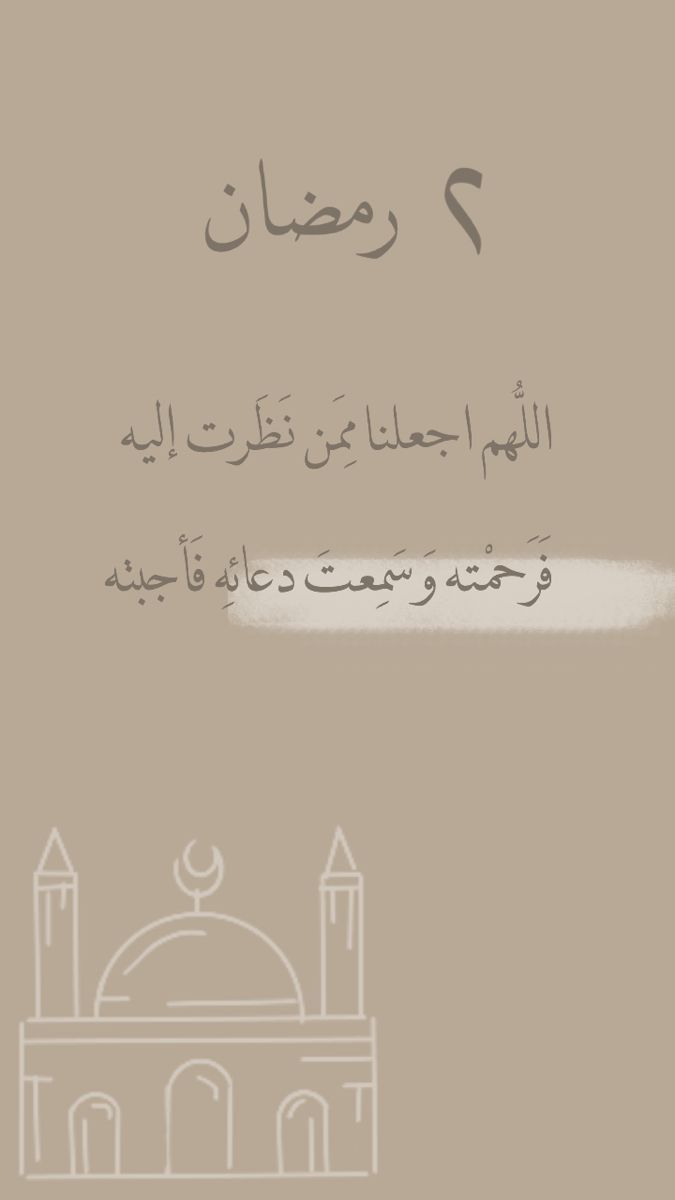 ٢ رمضان
اللَّهُم اجعلنا مِمَن نَظَرت إليه
فَرَحمْته وَسَمِعتَ دعائهِ فَأجبته